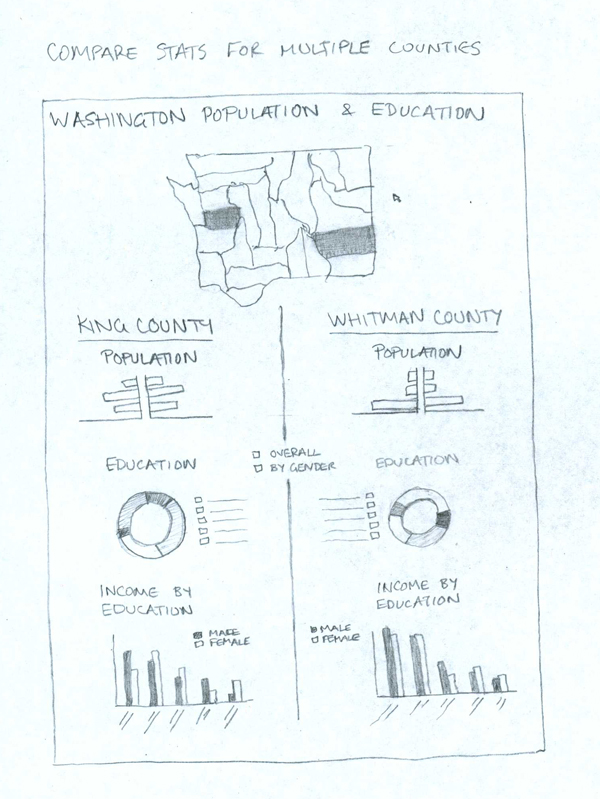 COMPARE STATS FOR MULTIPLE COUNTIES
WASHINGTON POPULATION & EDUCATION
KING COUNTY
POPULATION
EDUCATION
INCOME BY
EDUCATION
MALE
FEMALE
OVERALL
BY GENDER
WHITMAN COUNTY
POPULATION
EDUCATION
INCOME BY
EDUCATION
MALE
FEMALE